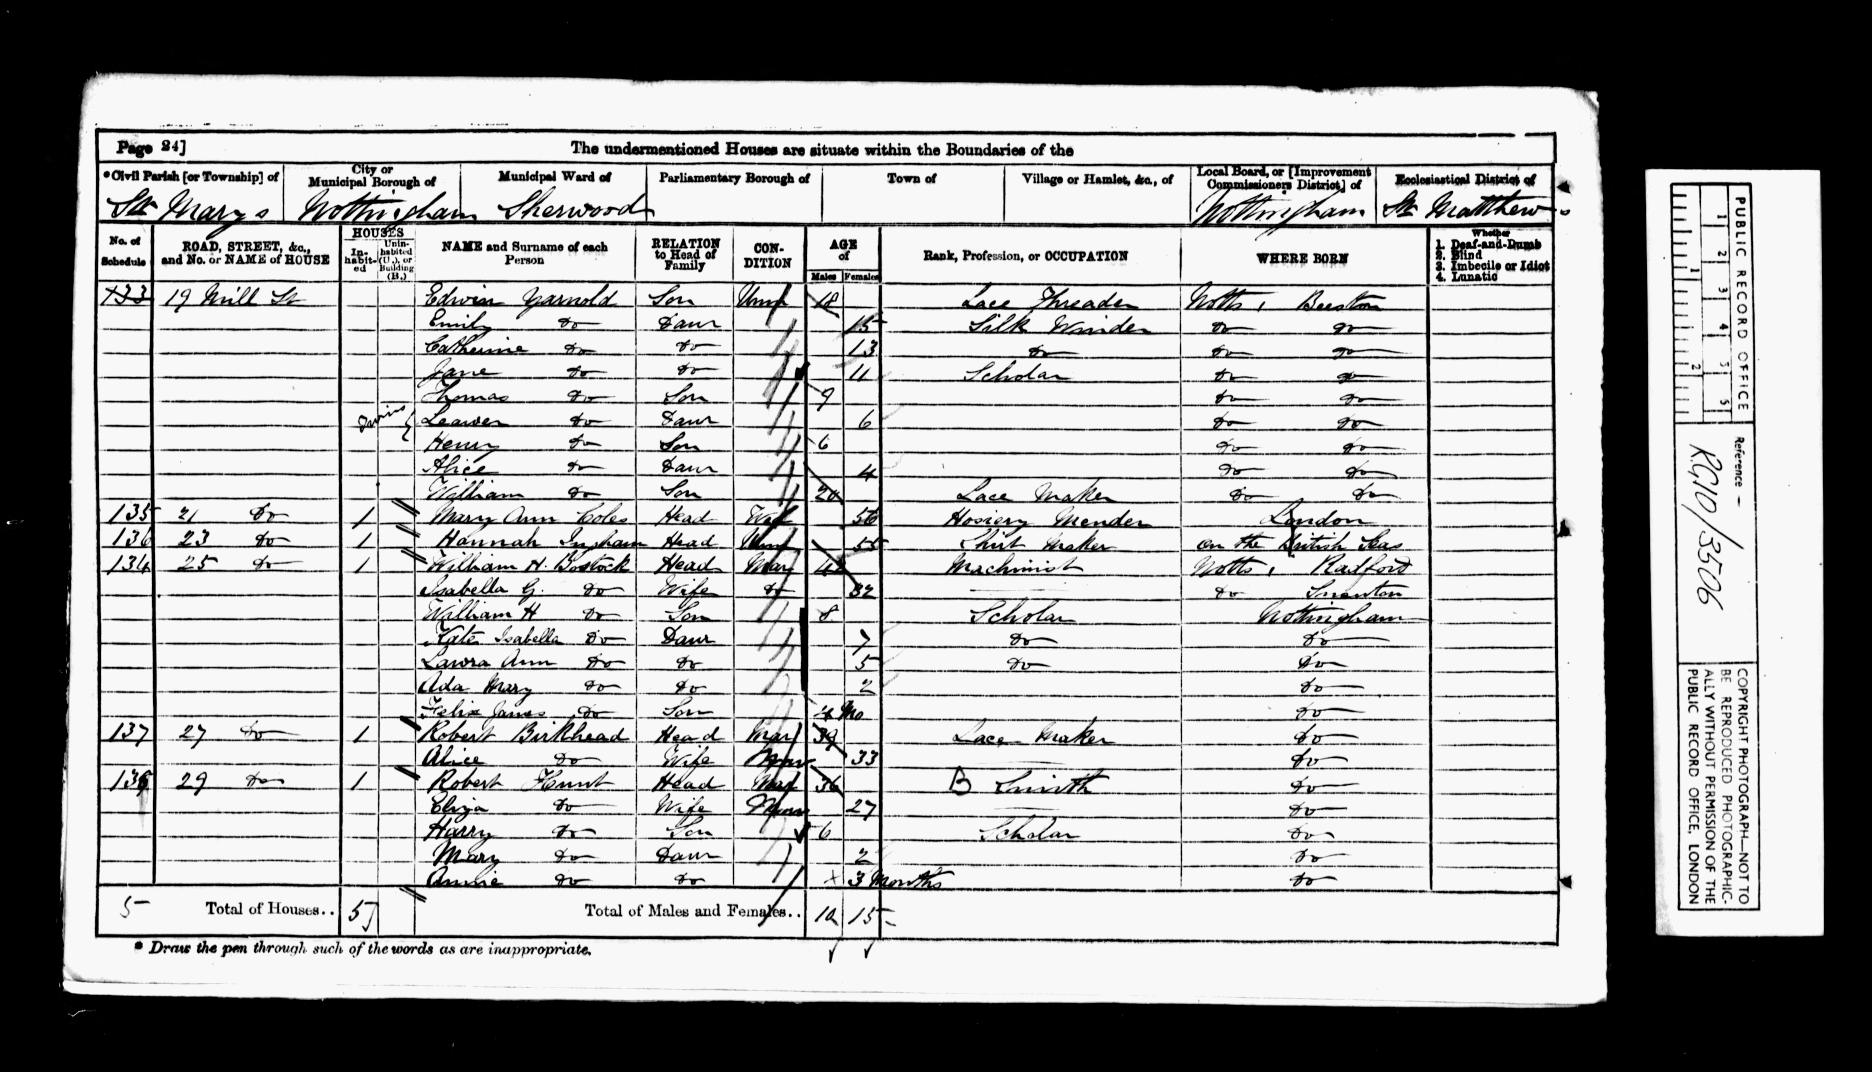 Page 24]
The undermentioned Houses are situate within the Boundaries of the
*Civil Parish [or Township] of
City or Municipal Borough of
Municipal Ward of
Parliamentary Borough of
Town of
Village or Hamlet, &c., of
Local Board, or [Improvement Commissioners District] of
Ecclesiastical District of
St Marys Nottingham Sherwood Nottingham St Matthews
No. of Schedule
ROAD, STREET, &c., and No. or NAME of HOUSE
HOUSES
Inhabited
Uninhabited (U.), or Building (B.)
NAME and Surname of each Person
RELATION to Head of Family
CONDITION
AGE of
Males Females
Rank, Profession, or OCCUPATION
WHERE BORN
Whether
1. Deaf-and-Dumb
2. Blind
3. Imbecile or Idiot
4. Lunatic
133 19 Mill St Edwin Yarnold Son Unm 18 Lace Threader Notts, Beeston
Emily Do Daur 15 Silk Winder Do Do
Catherine Do Do 13 Do Do Do
Jane Do Do 11 Scholar Do Do
Thomas Do Son 9 Do Do
Twins { Leawen Do Daur 6 Do Do
Henry Do Son 6 Do Do
Alice Do Daur 4 Do Do
William Do Son 20 Lace Maker Do Do
135 21 Do 1 Mary Ann Coles Head 56 Hosiery Mender London
136 23 Do 1 Hannah Ingham Head Unm 55 Shirt Maker on the British Seas
134 25 Do 1 William H. Bostock Head Mar Machinist Notts, Radford
Isabella G. Do Wife Do 32 Do Sneinton
William H Do Son 8 Scholar Nottingham
Kate Isabella Do Daur 7 Do Do
Laura Ann Do Do 5 Do Do
Ada Mary Do Do 2 Do
Felix James Do Son 4 Mo Do
137 27 Do 1 Robert Birkhead Head Mar 39 Lace Maker Do
Alice Do Wife 33 Do
138 29 Do 1 Robert Hunt Head Mar 36 B Smith Do
Eliza Do Wife 27 Do
Harry Do Son 6 Scholar Do
Mary Do Daur 2 Do
Annie Do Do 3 Months Do
5 Total of Houses.. 5 Total of Males and Females.. 10 15
* Draw the pen through such of the words as are inappropriate.
PUBLIC RECORD OFFICE
1 2 3 4 5
1 2
Reference –
RG10/3506
COPYRIGHT PHOTOGRAPH—NOT TO
BE REPRODUCED PHOTOGRAPHIC-
ALLY WITHOUT PERMISSION OF THE
PUBLIC RECORD OFFICE, LONDON